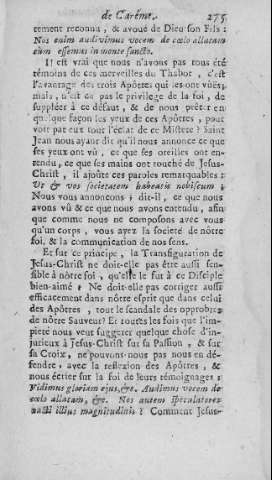 de Carême. 275
rement reconnu, & avoüé de Dieu son Fils :
Nos enim audivimus vocem de cœlo allatam
cùm essemus in monte sancto.
Il est vrai que nous n'avons pas tous été
témoins de ces merveilles du Thabor, c'est
l'avantage des trois Apôtres qui les ont vûës,
mais, n'est-ce pas le privilege de la foi, de
suppléer à ce défaut, & de nous prêter en
quelque façon les yeux de ces Apôtres, pour
voir par eux tout l'éclat de ce Mistere ? Saint
Jean nous ayant dit qu'il nous annonce ce que
ses yeux ont vû, ce que ses oreilles ont en-
tendu, ce que ses mains ont touché de Jesus-
Christ, il ajoûte ces paroles remarquables :
Ut & vos societatem habeatis nobiscum :
Nous vous annonçons, dit-il, ce que nous
avons vû & ce que nous avons entendu, afin
que comme nous ne composons avec vous
qu'un corps, vous ayez la societé de nôtre
foi, & la communication de nos sens.
Et sur ce principe, la Transfiguration de
Jesus-Christ ne doit-elle pas être aussi sen-
sible à nôtre foi, qu'elle le fut à ce Disciple
bien-aimé ? Ne doit-elle pas corriger aussi
efficacement dans nôtre esprit que dans celui
des Apôtres, tout le scandale des opprobres
de nôtre Sauveur ? Et toutes les fois que l'im-
pieté nous veut suggerer quelque chose d'in-
jurieux à Jesus-Christ sur sa Passion, & sur
sa Croix, ne pouvons-nous pas nous en dé-
fendre, avec la reflexion des Apôtres, & &
nous écrier sur la foi de leurs témoignages :
Vidimus gloriam ejus, &c. Audimus vocem de
cœlo allatam, &c. Nos autem speculatores
illius magnitudinis ? Comment Jesus-